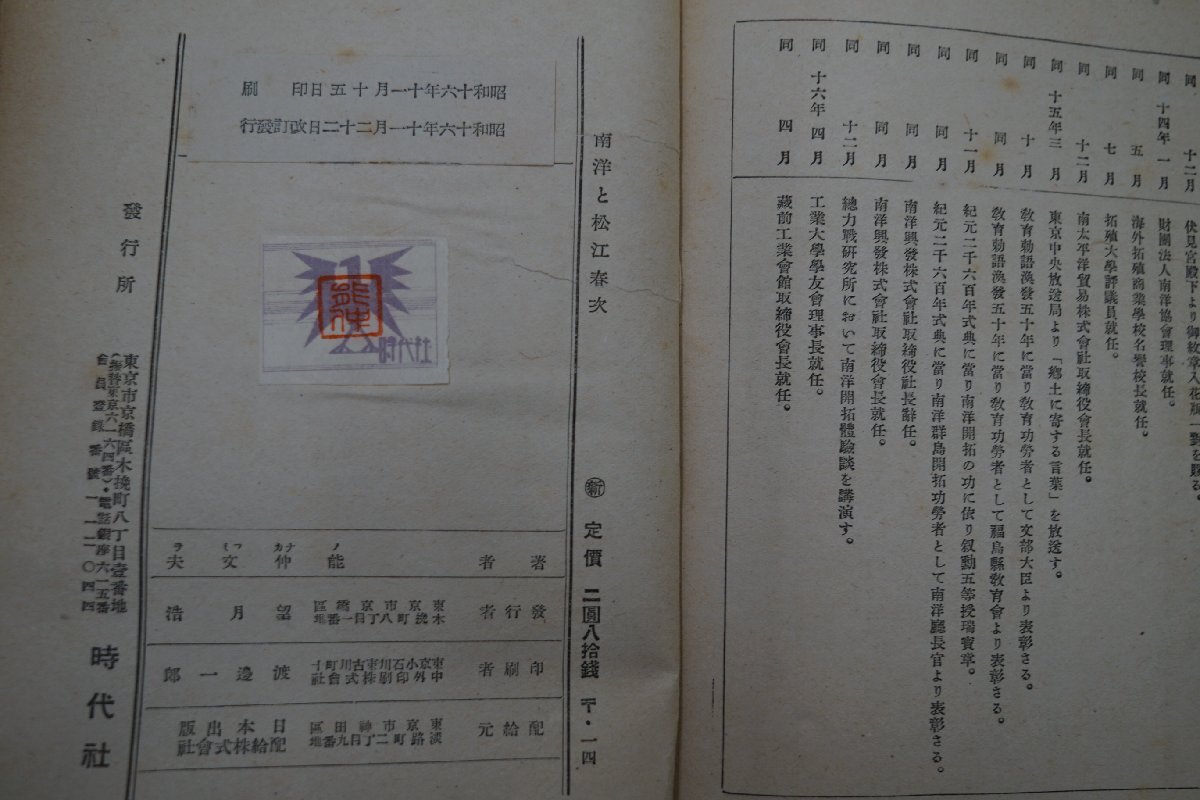 同 十二月 伏見宮殿下より御紋章入花瓶一對を賜る。
同 十四年一月 財團法人南洋協會理事就任。
同 五月 海外拓殖商業學校名譽校長就任。
同 七月 拓殖大學評議員就任。
同 十二月 南太平洋貿易株式會社取締役會長就任。
同 十五年三月 東京中央放送局より「鄕土に寄する言葉」を放送す。
同 十月 敎育勅語渙發五十年に當り敎育功勞者として文部大臣より表彰さる。
同 同月 敎育勅語渙發五十年に當り敎育功勞者として福島縣敎育會より表彰さる。
同 十一月 紀元二千六百年式典に當り南洋開拓の功に依り叙勳五等授瑞寶章。
同 同月 紀元二千六百年式典に當り南洋群島開拓功勞者として南洋廳長官より表彰さる。
同 同月 南洋興發株式會社取締役社長辭任。
同 同月 南洋興發株式會社取締役會長就任。
同 十二月 總力戰硏究所において南洋開拓體驗談を講演す。
同 十六年四月 工業大學學友會理事長就任。
同 四月 藏前工業會館取締役會長就任。
南洋と松江春次
㊟新 定價 二圓八拾錢 〒・一四
昭和十六年十一月十五日印刷
昭和十六年十一月二十二日改訂發行
時代社
著者 能仲文夫
ノ ナカ フミ ヲ
發行者 東京市京橋區木挽町八丁目一番地 望月浩
印刷者 渡邊一郎
配給元 東京市神田區淡路町二丁目九番地 日本出版配給株式會社
發行所
東京市京橋區木挽町八丁目壹番地
(振替東京六一六四番)・電話銀座六一五番
會員登錄番號一一一〇四四
時代社